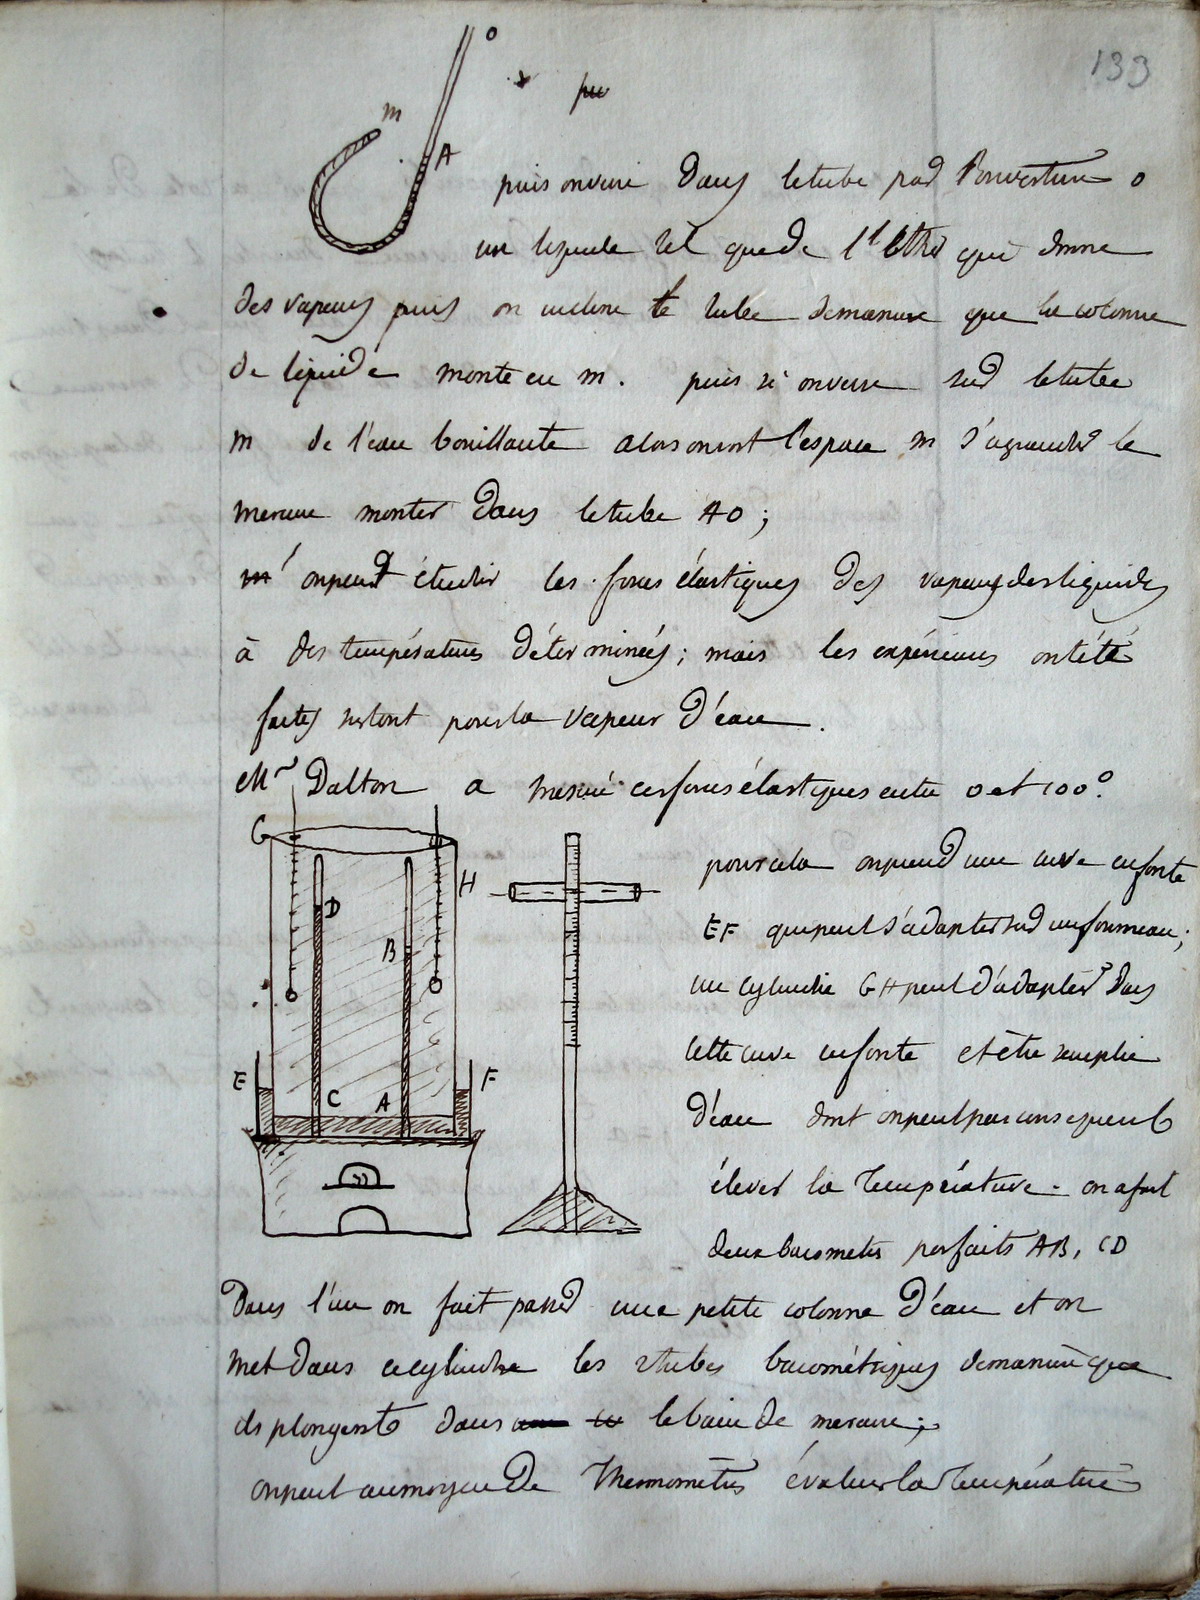 133
O
m
A
puis on verse dans le tube par l'ouverture o
un liquide tel que de l'Ether qui donne
des vapeurs puis on incline le tube de manière que la colonne
de liquide monte en m. puis si on verse sur le tube
m de l'eau bouillante alors on voit l'espace m s'agrandir le
mercure monter dans le tube AO ;
on peut étudier les forces élastiques des vapeurs des liquides
à des températures déterminées ; mais les expériences ont été
faites surtout pour la vapeur d'eau .
Mr Dalton a mesuré ces forces élastiques entre 0 et 100°.
G
H
D
B
E
F
C
A
pour cela on prend une cuve en fonte
EF qui peut s'adapter sur un fourneau ;
un cylindre GH peut s'adapter dans
cette cuve en fonte et être remplie
d'eau dont on peut par consequent
élever la température - on a fait
deux barometres parfaits AB, CD
Dans l'un on fait passer une petite colonne d'eau et on
met dans ce cylindre les 2 tubes barométriques de manière que
ils plongent dans le bain de mercure ;
on peut au moyen de Thermomètres évaluer la Température